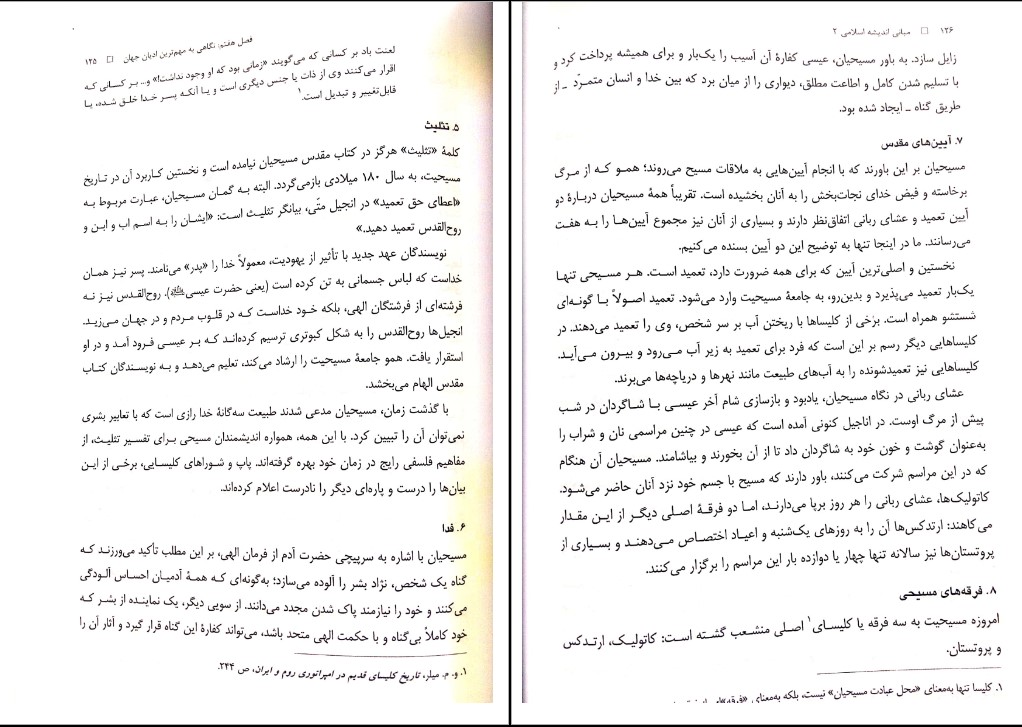 فصل هفتم: نگاهی به مهم‌ترین ادیان جهان □ ۱۲۵
لعنت باد بر کسانی که می‌گویند «زمانی بود که او وجود نداشت!» و... بر کسانی که
اقرار می‌کنند وی از ذات یا جنس دیگری است و یا آنکه پسر خدا خلق شده، یا
قابل‌تغییر و تبدیل است.۱
۵. تثلیث
کلمهٔ «تثلیث» هرگز در کتاب مقدس مسیحیان نیامده است و نخستین کاربرد آن در تاریخ
مسیحیت، به سال ۱۸۰ میلادی بازمی‌گردد. البته به گمان مسیحیان، عبارت مربوط به
«اعطای حق تعمید» در انجیل متّی، بیانگر تثلیث است: «ایشان را به اسم اب و ابن و
روح‌القدس تعمید دهید.»
نویسندگان عهد جدید با تأثیر از یهودیت، معمولاً خدا را «پدر» می‌نامند. پسر نیز همان
خداست که لباس جسمانی به تن کرده است (یعنی حضرت عیسی﷿). روح‌القدس نیز نه
فرشته‌ای از فرشتگان الهی، بلکه خود خداست که در قلوب مردم و در جهان می‌زید.
انجیل‌ها روح‌القدس را به شکل کبوتری ترسیم کرده‌اند که بر عیسی فرود آمد و در او
استقرار یافت. همو جامعهٔ مسیحیت را ارشاد می‌کند، تعلیم می‌دهد و به نویسندگان کتاب
مقدس الهام می‌بخشد.
با گذشت زمان، مسیحیان مدعی شدند طبیعت سه‌گانهٔ خدا رازی است که با تعابیر بشری
نمی‌توان آن را تبیین کرد. با این همه، همواره اندیشمندان مسیحی برای تفسیر تثلیث، از
مفاهیم فلسفی رایج در زمان خود بهره گرفته‌اند. پاپ و شوراهای کلیسایی، برخی از این
بیان‌ها را درست و پاره‌ای دیگر را نادرست اعلام کرده‌اند.
۶. فدا
مسیحیان با اشاره به سرپیچی حضرت آدم از فرمان الهی، بر این مطلب تأکید می‌ورزند که
گناه یک شخص، نژاد بشر را آلوده می‌سازد؛ به‌گونه‌ای که همهٔ آدمیان احساس آلودگی
می‌کنند و خود را نیازمند پاک شدن مجدد می‌دانند. از سویی دیگر، یک نماینده از بشر که
خود کاملاً بی‌گناه و با حکمت الهی متحد باشد، می‌تواند کفارهٔ این گناه قرار گیرد و آثار آن را
۱. و. م. میلر، تاریخ کلیسای قدیم در امپراتوری روم و ایران، ص ۲۴۴.
۱۲۶ □ مبانی اندیشه اسلامی ۲
زایل سازد. به باور مسیحیان، عیسی کفارهٔ آن آسیب را یک‌بار و برای همیشه پرداخت کرد و
با تسلیم شدن کامل و اطاعت مطلق، دیواری را از میان برد که بین خدا و انسان متمرّد ـ از
طریق گناه ـ ایجاد شده بود.
۷. آیین‌های مقدس
مسیحیان بر این باورند که با انجام آیین‌هایی به ملاقات مسیح می‌روند؛ همو که از مرگ
برخاسته و فیض خدای نجات‌بخش را به آنان بخشیده است. تقریباً همهٔ مسیحیان دربارهٔ دو
آیین تعمید و عشای ربانی اتفاق‌نظر دارند و بسیاری از آنان نیز مجموع آیین‌ها را به هفت
می‌رسانند. ما در اینجا تنها به توضیح این دو آیین بسنده می‌کنیم.
نخستین و اصلی‌ترین آیین که برای همه ضرورت دارد، تعمید است. هر مسیحی تنها
یک‌بار تعمید می‌پذیرد و بدین‌رو، به جامعهٔ مسیحیت وارد می‌شود. تعمید اصولاً با گونه‌ای
شستشو همراه است. برخی از کلیساها با ریختن آب بر سر شخص، وی را تعمید می‌دهند. در
کلیساهایی دیگر رسم بر این است که فرد برای تعمید به زیر آب می‌رود و بیرون می‌آید.
کلیساهایی نیز تعمیدشونده را به آب‌های طبیعت مانند نهرها و دریاچه‌ها می‌برند.
عشای ربانی در نگاه مسیحیان، یادبود و بازسازی شام آخر عیسی با شاگردان در شب
پیش از مرگ اوست. در اناجیل کنونی آمده است که عیسی در چنین مراسمی نان و شراب را
به‌عنوان گوشت و خون خود به شاگردان داد تا از آن بخورند و بیاشامند. مسیحیان آن هنگام
که در این مراسم شرکت می‌کنند، باور دارند که مسیح با جسم خود نزد آنان حاضر می‌شود.
کاتولیک‌ها، عشای ربانی را هر روز برپا می‌دارند، اما دو فرقهٔ اصلی دیگر از این مقدار
می‌کاهند: ارتدکس‌ها آن را به روزهای یک‌شنبه و اعیاد اختصاص می‌دهند و بسیاری از
پروتستان‌ها نیز سالانه تنها چهار یا دوازده بار این مراسم را برگزار می‌کنند.
۸. فرقه‌های مسیحی
امروزه مسیحیت به سه فرقه یا کلیسای۱ اصلی منشعب گشته است: کاتولیک، ارتدکس
و پروتستان.
۱. کلیسا تنها به‌معنای «محل عبادت مسیحیان» نیست، بلکه به‌معنای «فرقه»